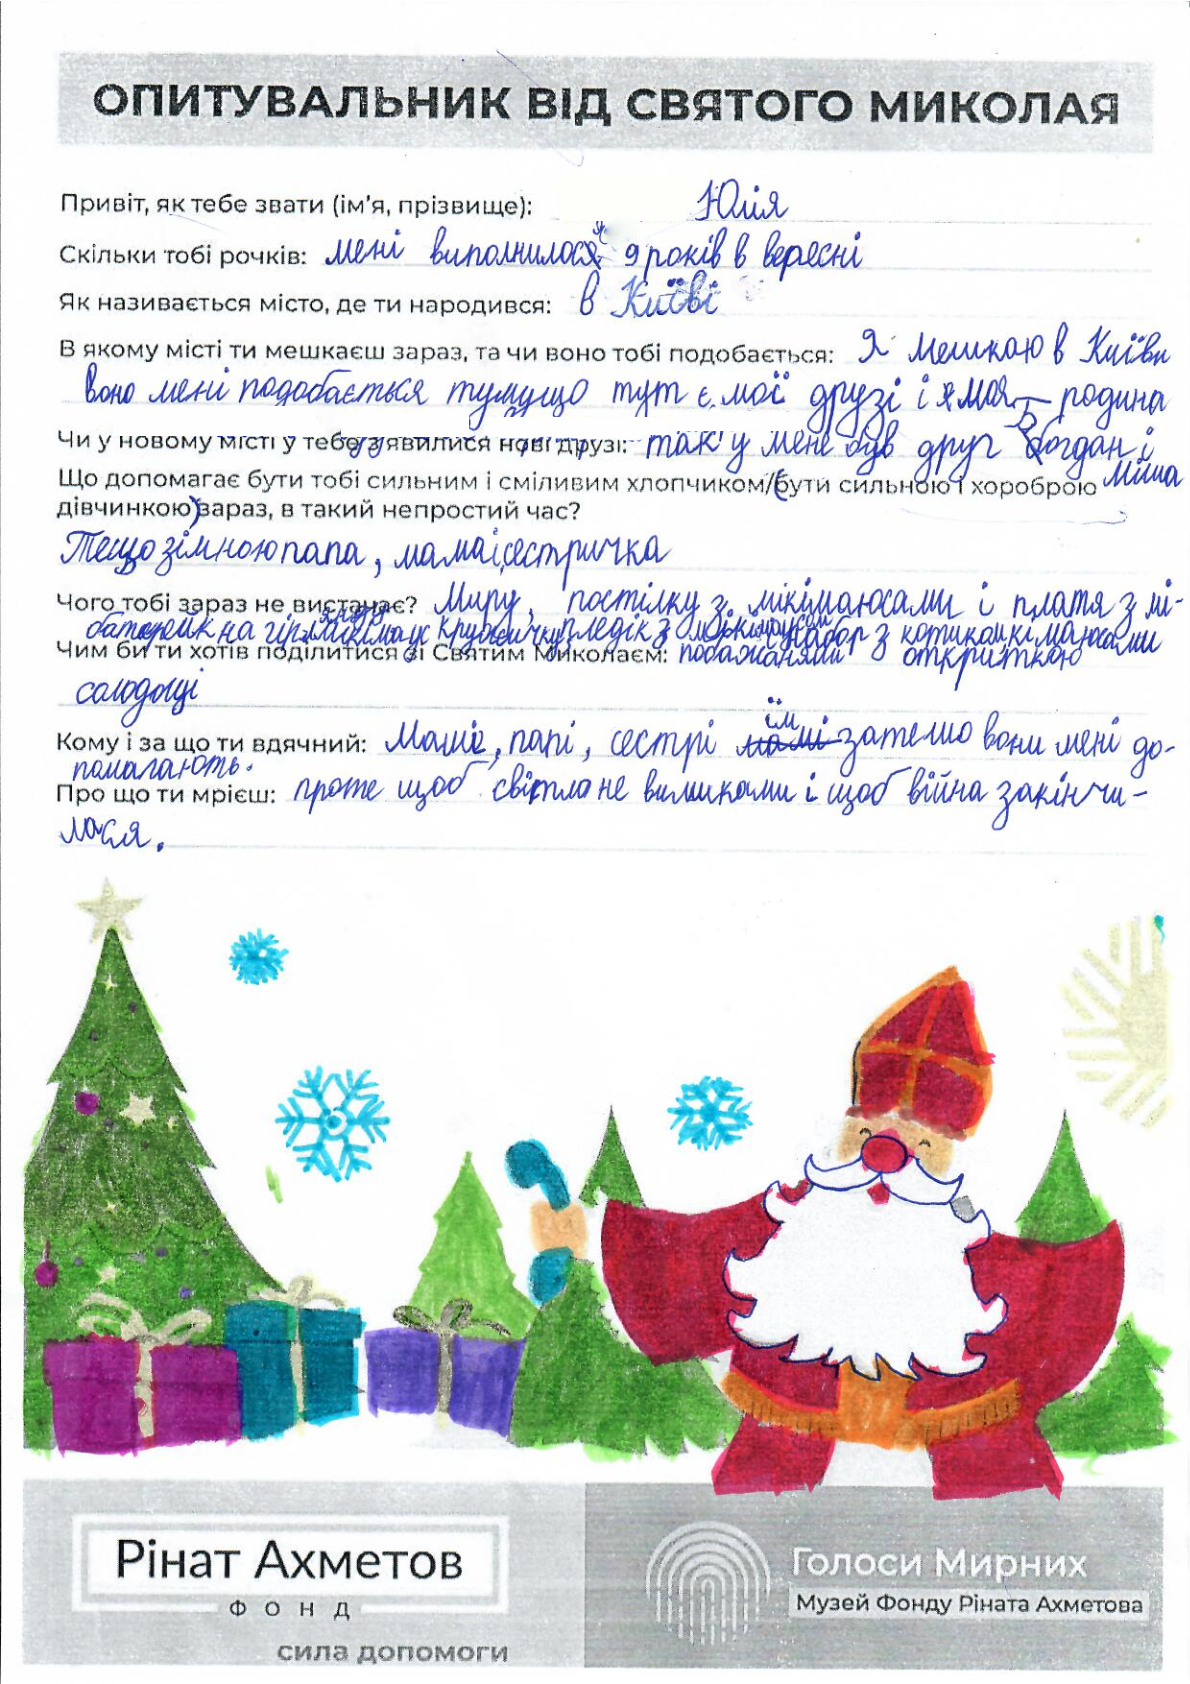 ОПИТУВАЛЬНИК ВІД СВЯТОГО МИКОЛАЯ
Привіт, як тебе звати (ім'я, прізвище): Юлія
Скільки тобі рочків: мені виполнилося 9 років в вересні
Як називається місто, де ти народився: в Київі
В якому місті ти мешкаєш зараз, та чи воно тобі подобається: Я мешкаю в Київи
воно мені подобається тумущо тут є мої друзі і моя родина
Чи у новому місті у тебе з'явилися нові друзі: так у мене був друг Богдан і
Міша
Що допомагає бути тобі сильним і сміливим хлопчиком/(бути сильною і хороброю
дівчинкою) зараз, в такий непростий час?
Тещо зімною папа, мама і сестричка
Чого тобі зараз не вистачає? Миру, постілку з мікімаюсами і платя з мі-
на кружечку пледік з набор з котиком
Чим би ти хотів поділитися зі Святим Миколаєм: побажанями откриткою
солодощі
Кому і за що ти вдячний: Мамі, папі, сестрі їм зателю вони мені до-
помагають.
Про що ти мрієш: проте щоб світло не вимикали і щоб війна закінчи-
лася.
Рінат Ахметов
ФОНД
сила допомоги
Голоси Мирних
Музей Фонду Ріната Ахметова